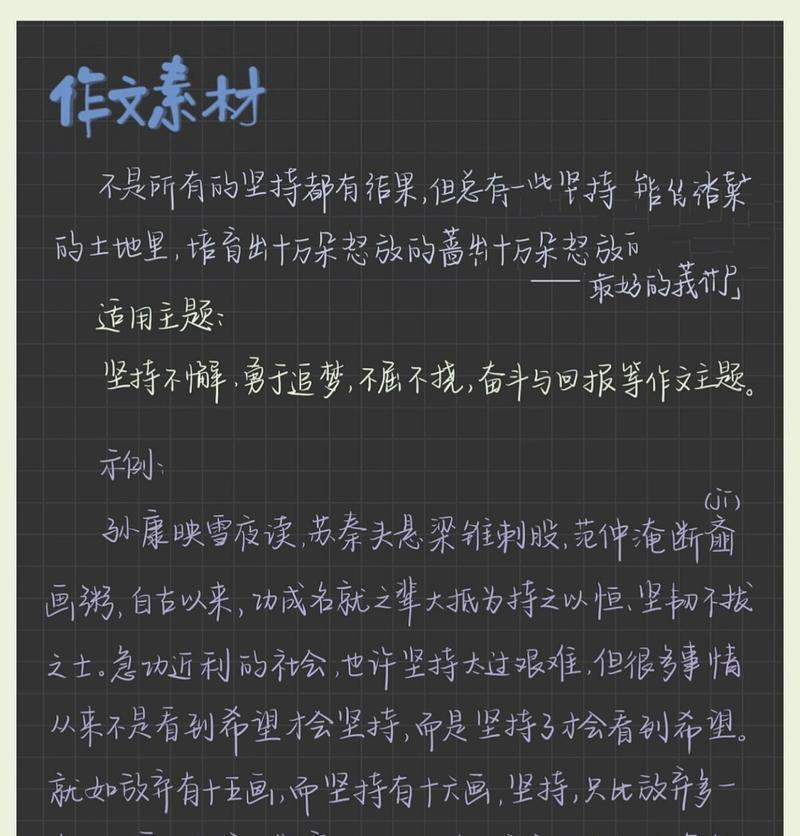 作文素材
不是所有的坚持都有结果,但总有一些坚持 能从
的土地里,培育出十万朵怒放的蔷 十万朵怒放
—— 最好的我们」
适用主题:
坚持不懈,勇于追梦,不屈不挠,奋斗与回报等作文主题。
示例:
(jī)
孙康映雪夜读,苏秦头悬梁锥刺股,范仲淹断齑
画粥,自古以来,功成名就之辈大抵为持之以恒、坚韧不拔
之士。急功近利的社会,也许坚持太过艰难,但很多事情
从来不是看到希望才会坚持,而是坚持了才会看到希望。
就如放弃有十五画,而坚持有十六画,坚持,只比放弃多一